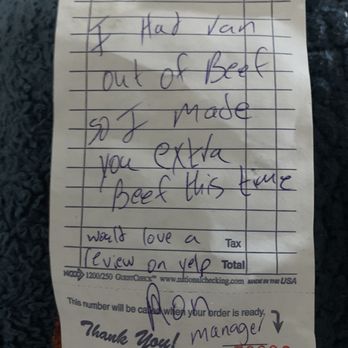 I Had ran
out of Beef
so I made
you extra
Beef this time
would love a Tax
review on yelp Total
1200/250 GUESTCHECK™ www.nationalchecking.com MADE IN THE USA
Ron
This number will be called when your order is ready.
Thank You! manager